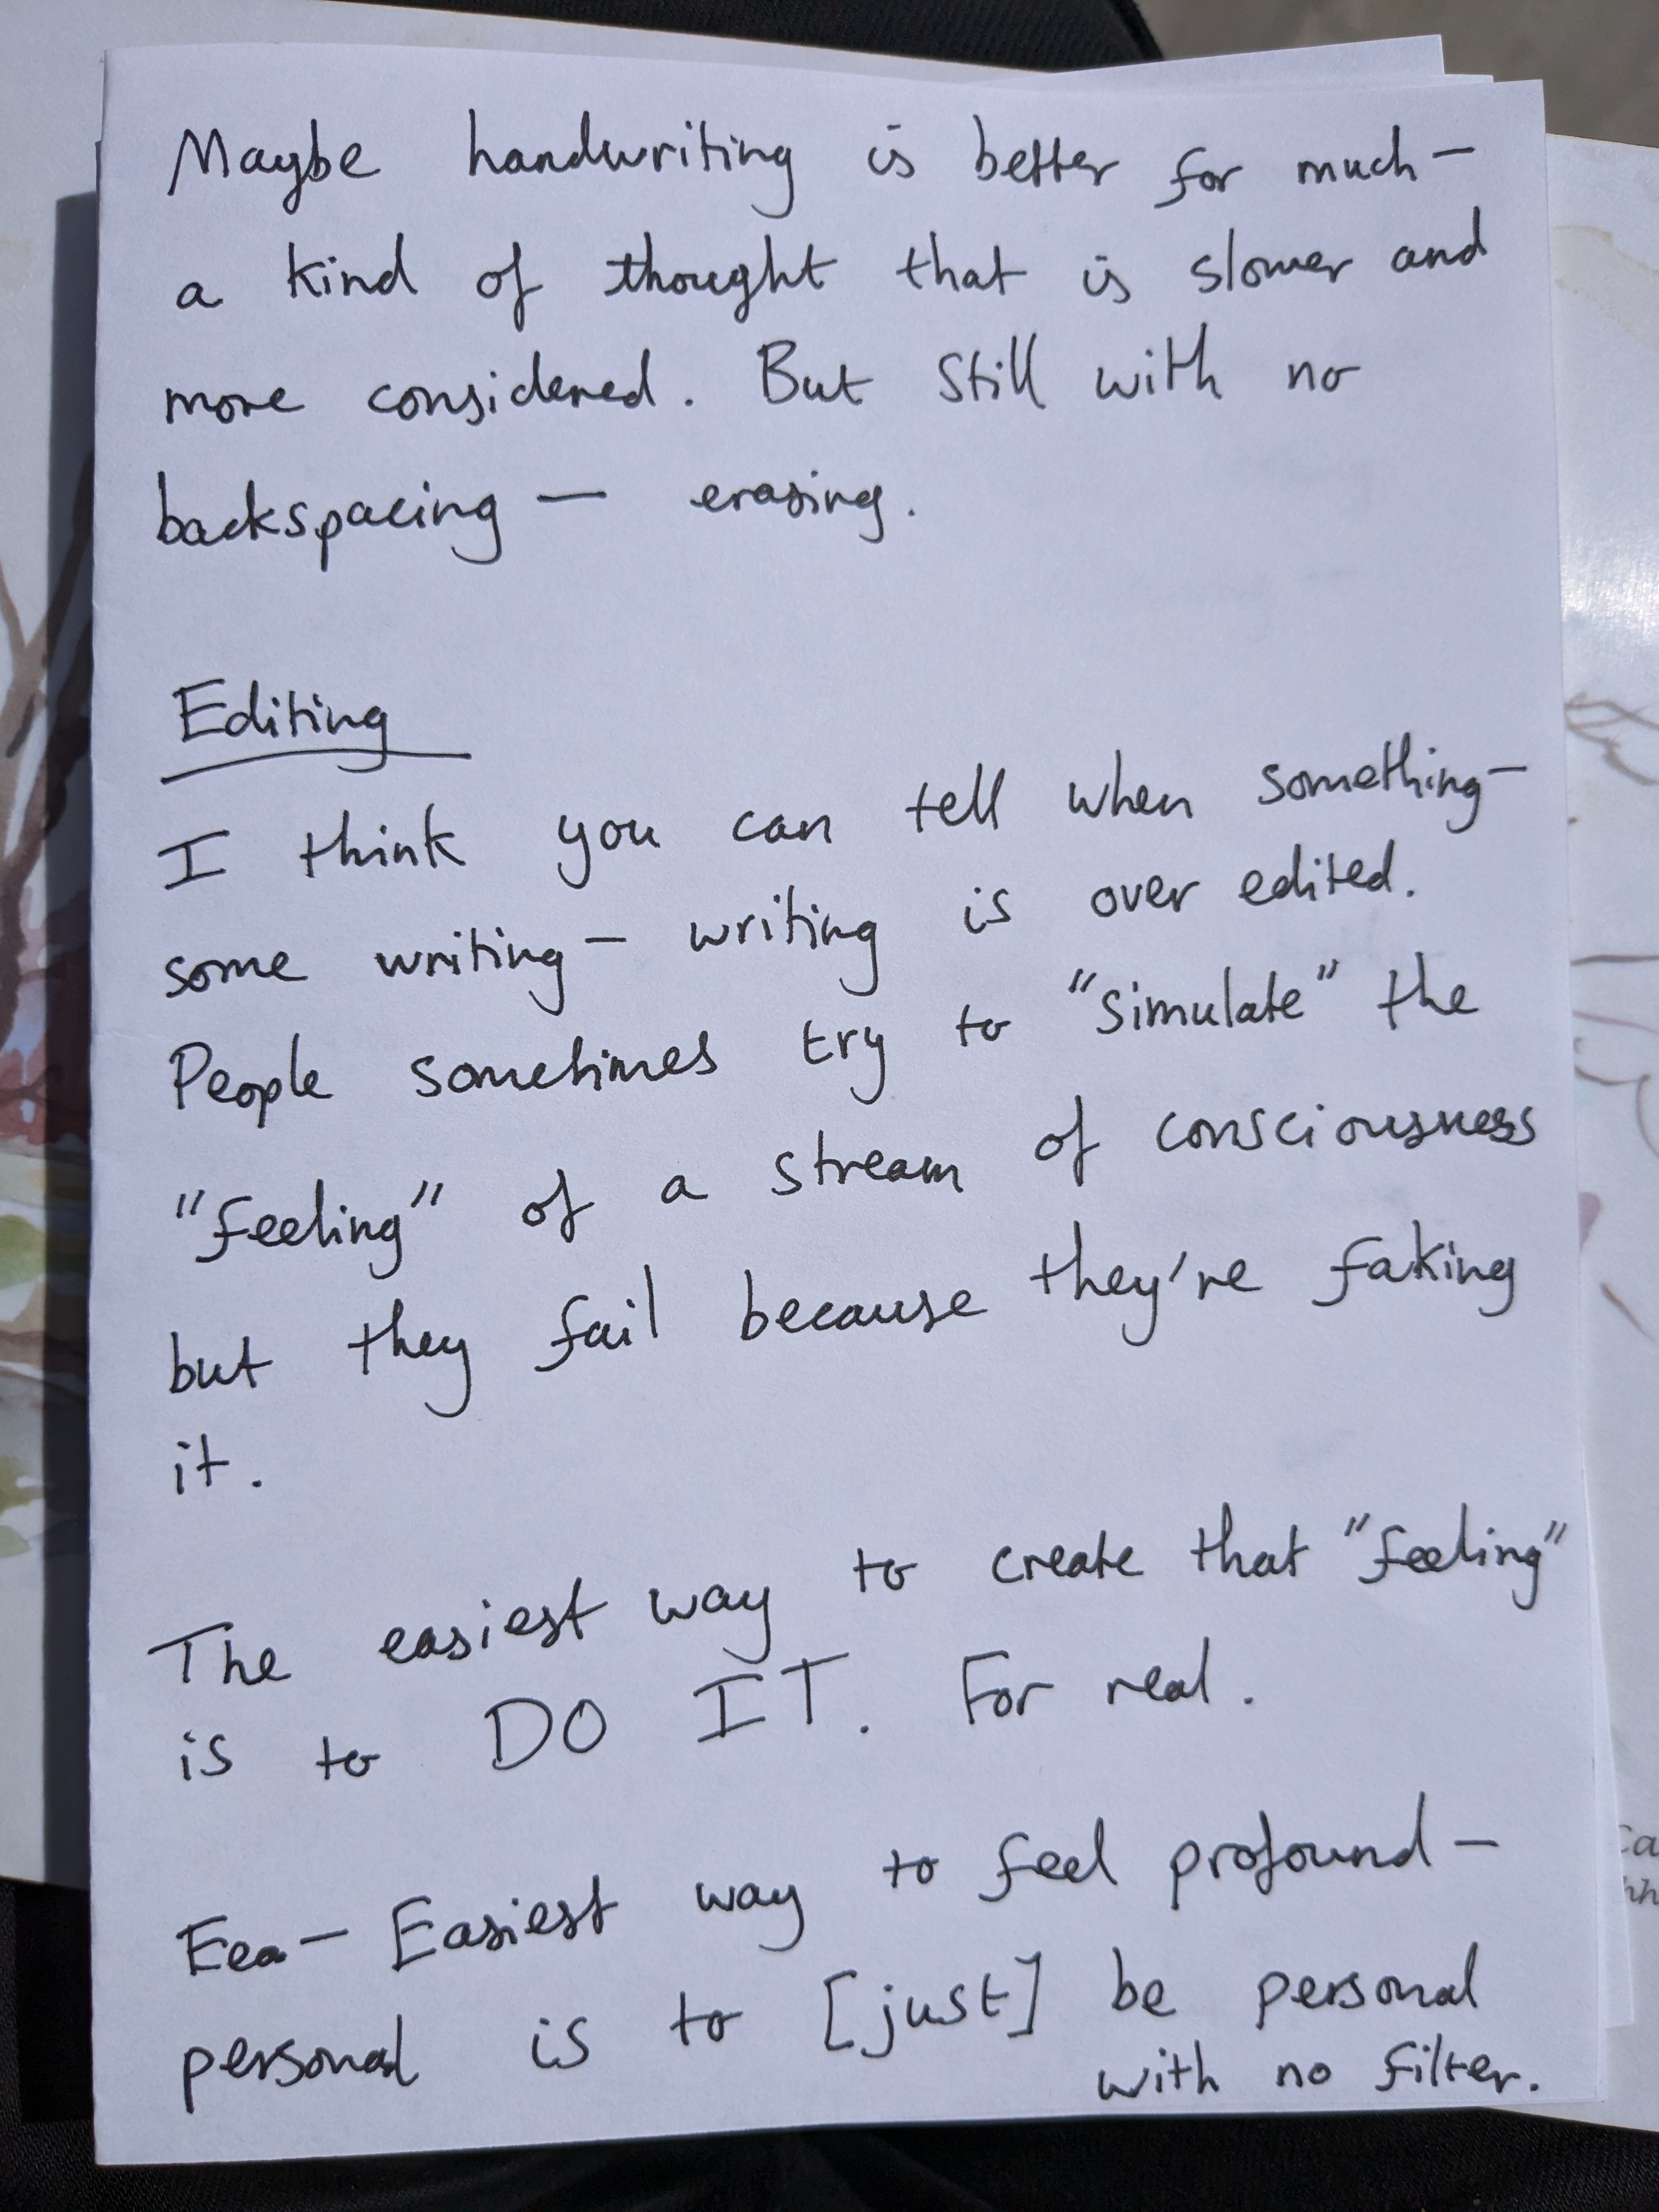 Maybe handwriting is better for much—
a kind of thought that is slower and
more considered. But still with no
backspacing — erasing.
Editing
I think you can tell when something—
some writing— writing is over edited.
People sometimes try to "simulate" the
"feeling" of a stream of consciousness
but they fail because they're faking
it.
The easiest way to create that "feeling"
is to DO IT. For real.
Eea— Easiest way to feel profound—
personal is to [just] be personal
with no filter.
Ca